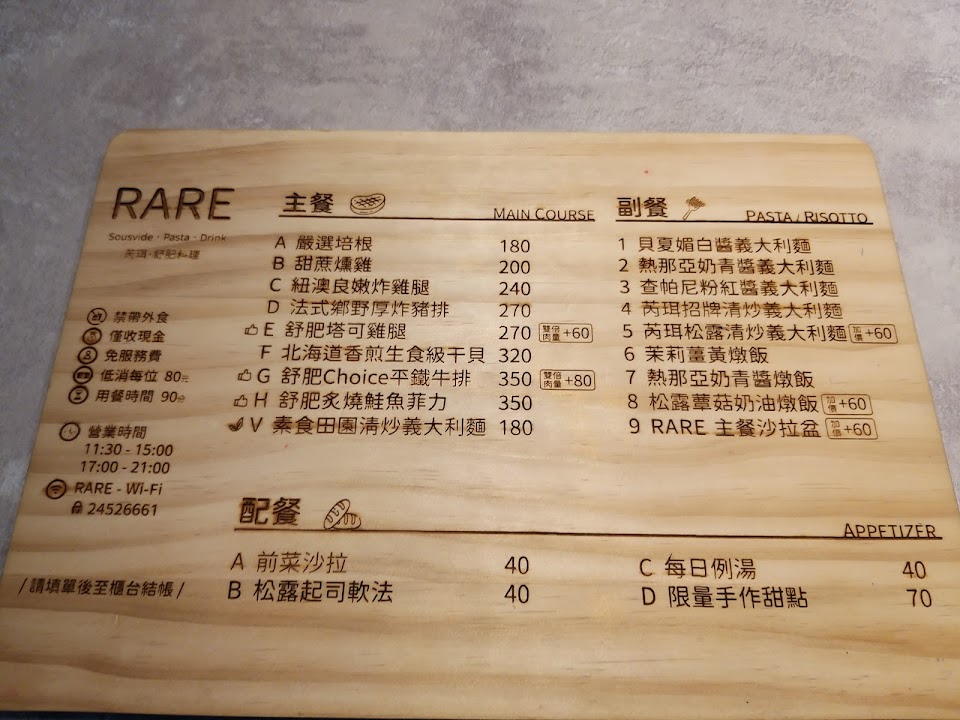 RARE
Sousvide · Pasta · Drink
芮珥·舒肥料理
禁帶外食
僅收現金
免服務費
低消每位 80元
用餐時間 90分
營業時間
11:30 - 15:00
17:00 - 21:00
RARE - Wi-Fi
24526661
/ 請填單後至櫃台結帳 /
主餐 MAIN COURSE
A 嚴選培根 180
B 甜蔗燻雞 200
C 紐澳良嫩炸雞腿 240
D 法式鄉野厚炸豬排 270
E 舒肥塔可雞腿 270 雙倍肉量 +60
F 北海道香煎生食級干貝 320
G 舒肥Choice平鐵牛排 350 雙倍肉量 +80
H 舒肥炙燒鮭魚菲力 350
V 素食田園清炒義大利麵 180
副餐 PASTA / RISOTTO
1 貝夏媚白醬義大利麵
2 熱那亞奶青醬義大利麵
3 查帕尼粉紅醬義大利麵
4 芮珥招牌清炒義大利麵
5 芮珥松露清炒義大利麵 加價 +60
6 茉莉薑黃燉飯
7 熱那亞奶青醬燉飯
8 松露蕈菇奶油燉飯 加價 +60
9 RARE 主餐沙拉盆 加價 +60
配餐 APPETIZER
A 前菜沙拉 40
B 松露起司軟法 40
C 每日例湯 40
D 限量手作甜點 70